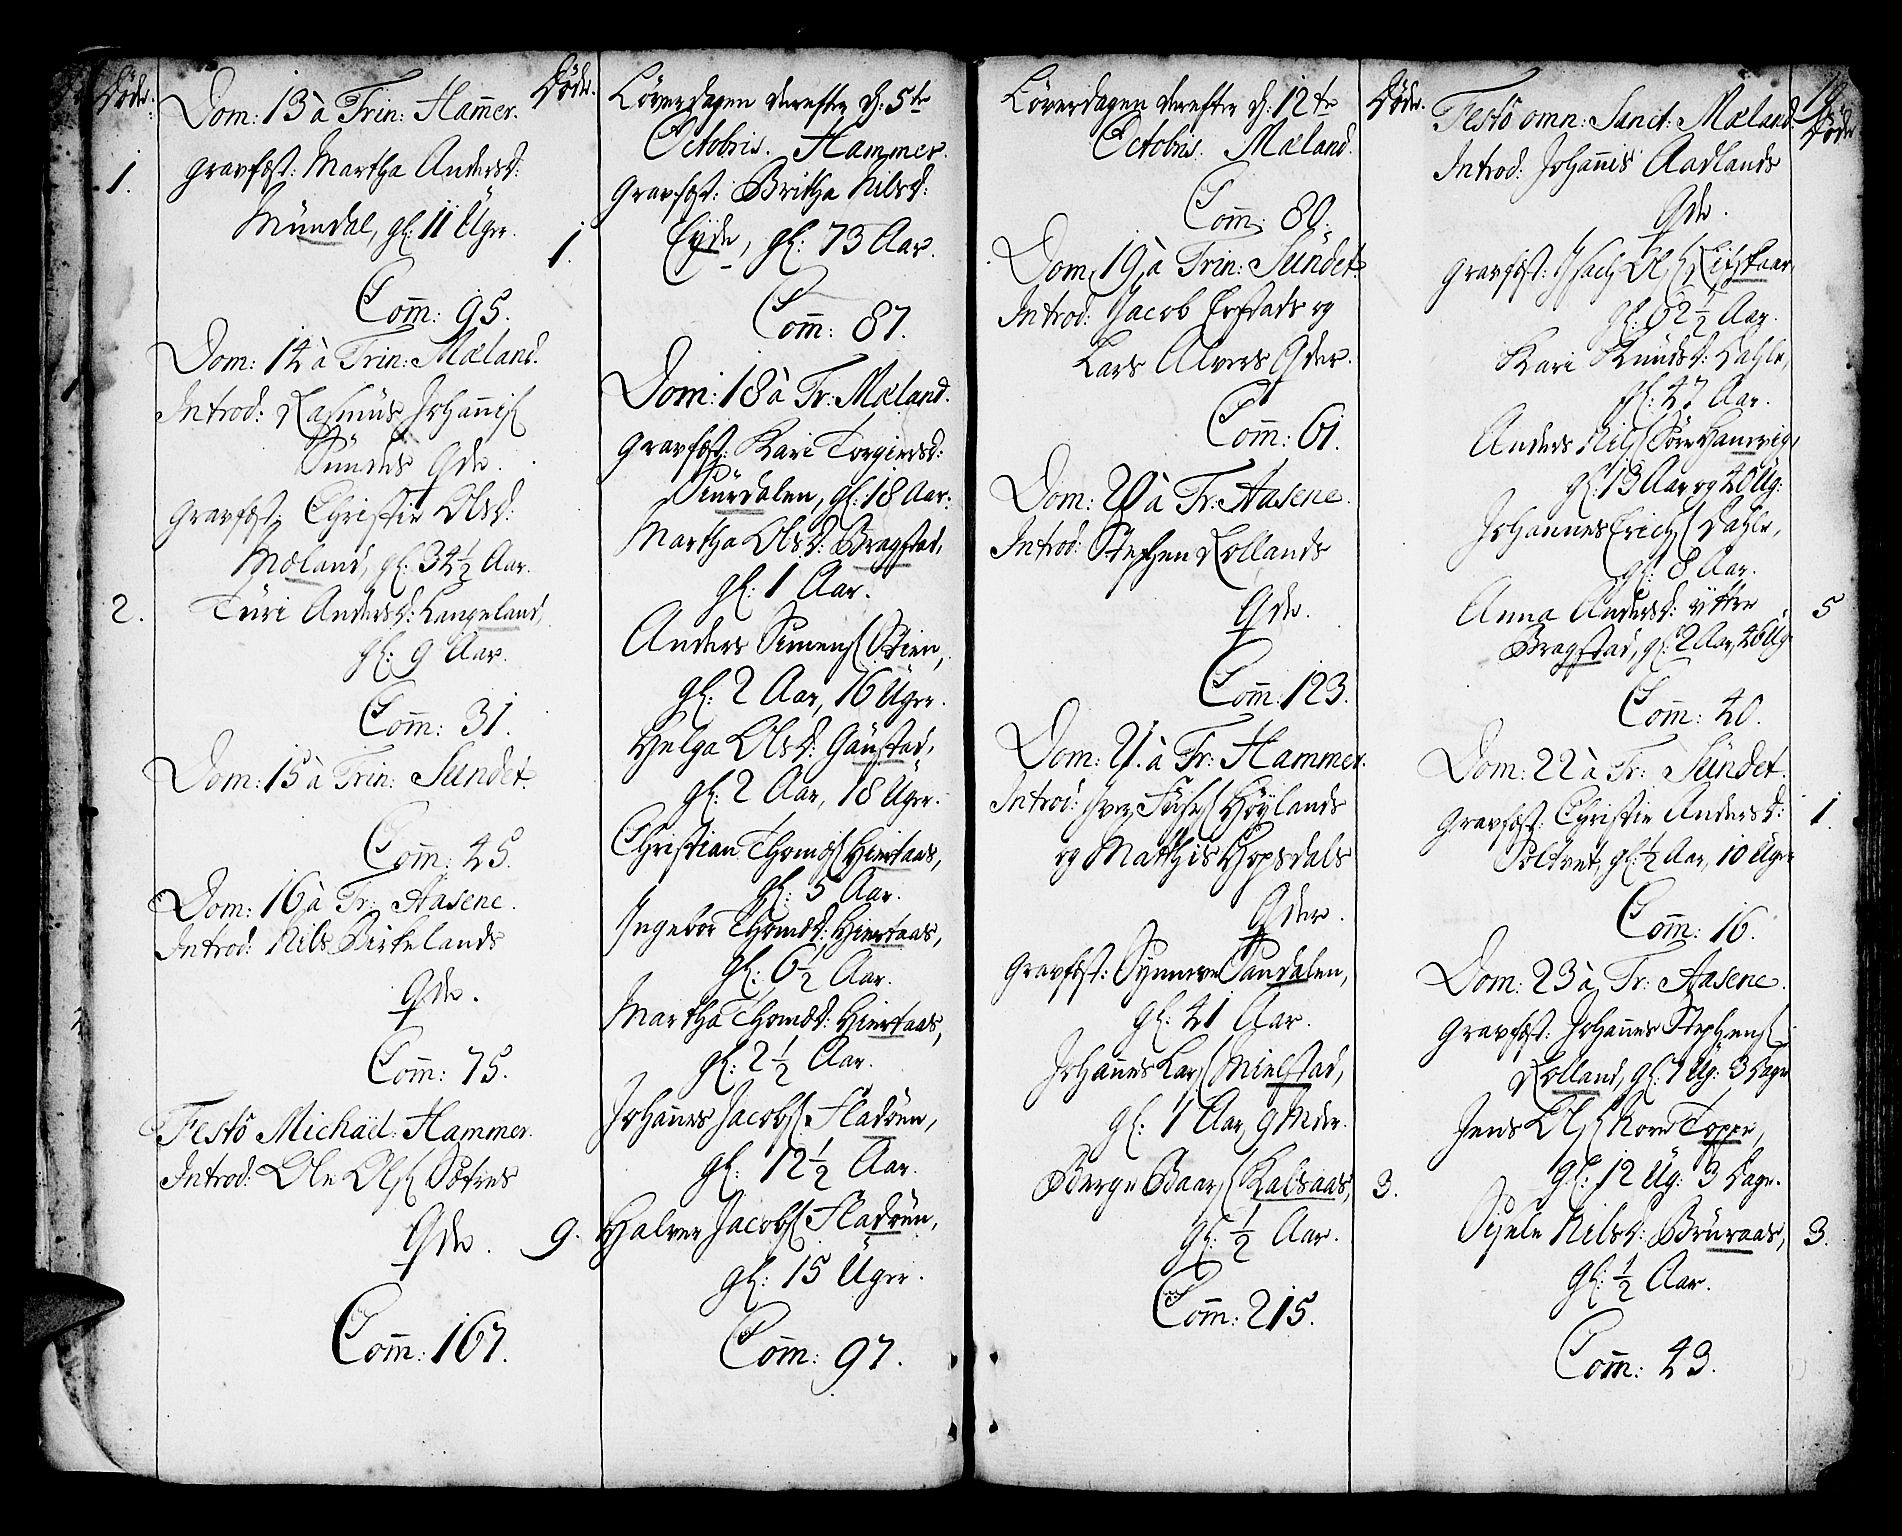 Døde.
Dom: 13 à Trin: Hamer.
1. Gravfæst: Martha Andersd:
Mündal, gl: 11 Üger.
Com: 95.
Dom: 14 à Trin: Mæland.
Introd: Rasmüs Johannis
Sündes Qde.
Gravfæst: Christie Olsd:
Mæland, gl: 34½ Aar.
2. Türi Andersd: Langeland,
gl: 9 Aar.
Com: 31.
Dom: 15 à Trin: Sündet.
Com: 45.
Dom: 16 à Tr: Aasene.
Introd: Nils Birkelands
Qde.
Com: 75.
Festo Michaël: Hammer.
Introd: Ole Ols: Sætres
Qde.
Com: 167.
Døde.
Løverdagen derefter d: 5te
Octobris. Hammer.
Gravfæst: Britha Nilsd:
1. Eyde, gl: 73 Aar.
Com: 87.
Dom: 18 à Tr: Mæland.
Gravfæst: Kari Torgiersd:
gl: 18 Aar.
Martha Olsd: Bragstad,
gl: 1 Aar.
Anders Simens: Stien,
gl: 2 Aar, 16 Üger.
Helga Olsd: Gaüstad,
gl: 2 Aar, 18 Üger.
Christian Thomæs: Hiertaas,
gl: 5 Aar.
Ingebor Thomæd: Hiertaas,
gl: 6½ Aar.
Martha Thomæd: Hiertaas,
gl: 2½ Aar.
Johannes Jacobs: Fladøen,
gl: 12½ Aar.
9. Halver Jacobs: Fladøen,
gl: 15 Üger.
Com: 97.
Løverdagen derefter d: 12te
Octobris. Mæland.
Com: 80.
Dom: 19 à Trin: Sündet.
Introd: Jacob Erstads og
Lars Alvers Qder.
Com: 61.
Dom: 20 à Tr: Aasene.
Introd: Stephen Rollands
Qde.
Com: 123.
Dom: 21 à Tr: Hammer.
Introd: Iver Høylands
og Matthis Hopsdals
Qder.
Gravfæst: Synneve Sandalen,
gl: 41 Aar.
Johannes Lars: Mielstad,
gl: 1 Aar, 9 Mdr.
Børge Baars: Kalsaas, 3.
gl: ½ Aar.
Com: 215.
Døde.
Festo omn: Sanct: Mæland.
Døde
Introd: Johannis Aadlands
Qde.
Gravfæst: Isach Ols:
gl: 62½ Aar.
Kari Knüdsd: Dahle,
gl: 47 Aar.
Anders Nils: Søre Hanvig,
gl: 13 Aar og 40 Üg:
Johannes Erichs: Dahle,
gl: 8 Aar.
Anna Andersd: ytter 5
Bragstad, gl: 2 Aar, 46 Üg:
Com: 40.
Dom: 22 à Tr: Sündet.
Gravfæst: Christie Andersd: 1.
gl: ½ Aar, 10 Üger
Com: 16.
Dom: 23 à Tr: Aasene.
Gravfæst: Johannes Stephens:
Rolland, gl: 1 Üg: 3 Dage
Jens Ols: Nore Toppe,
gl: 12 Üg: 3 Dage.
Nilsd: Brüraas, 3.
gl: ½ Aar.
Com: 43.